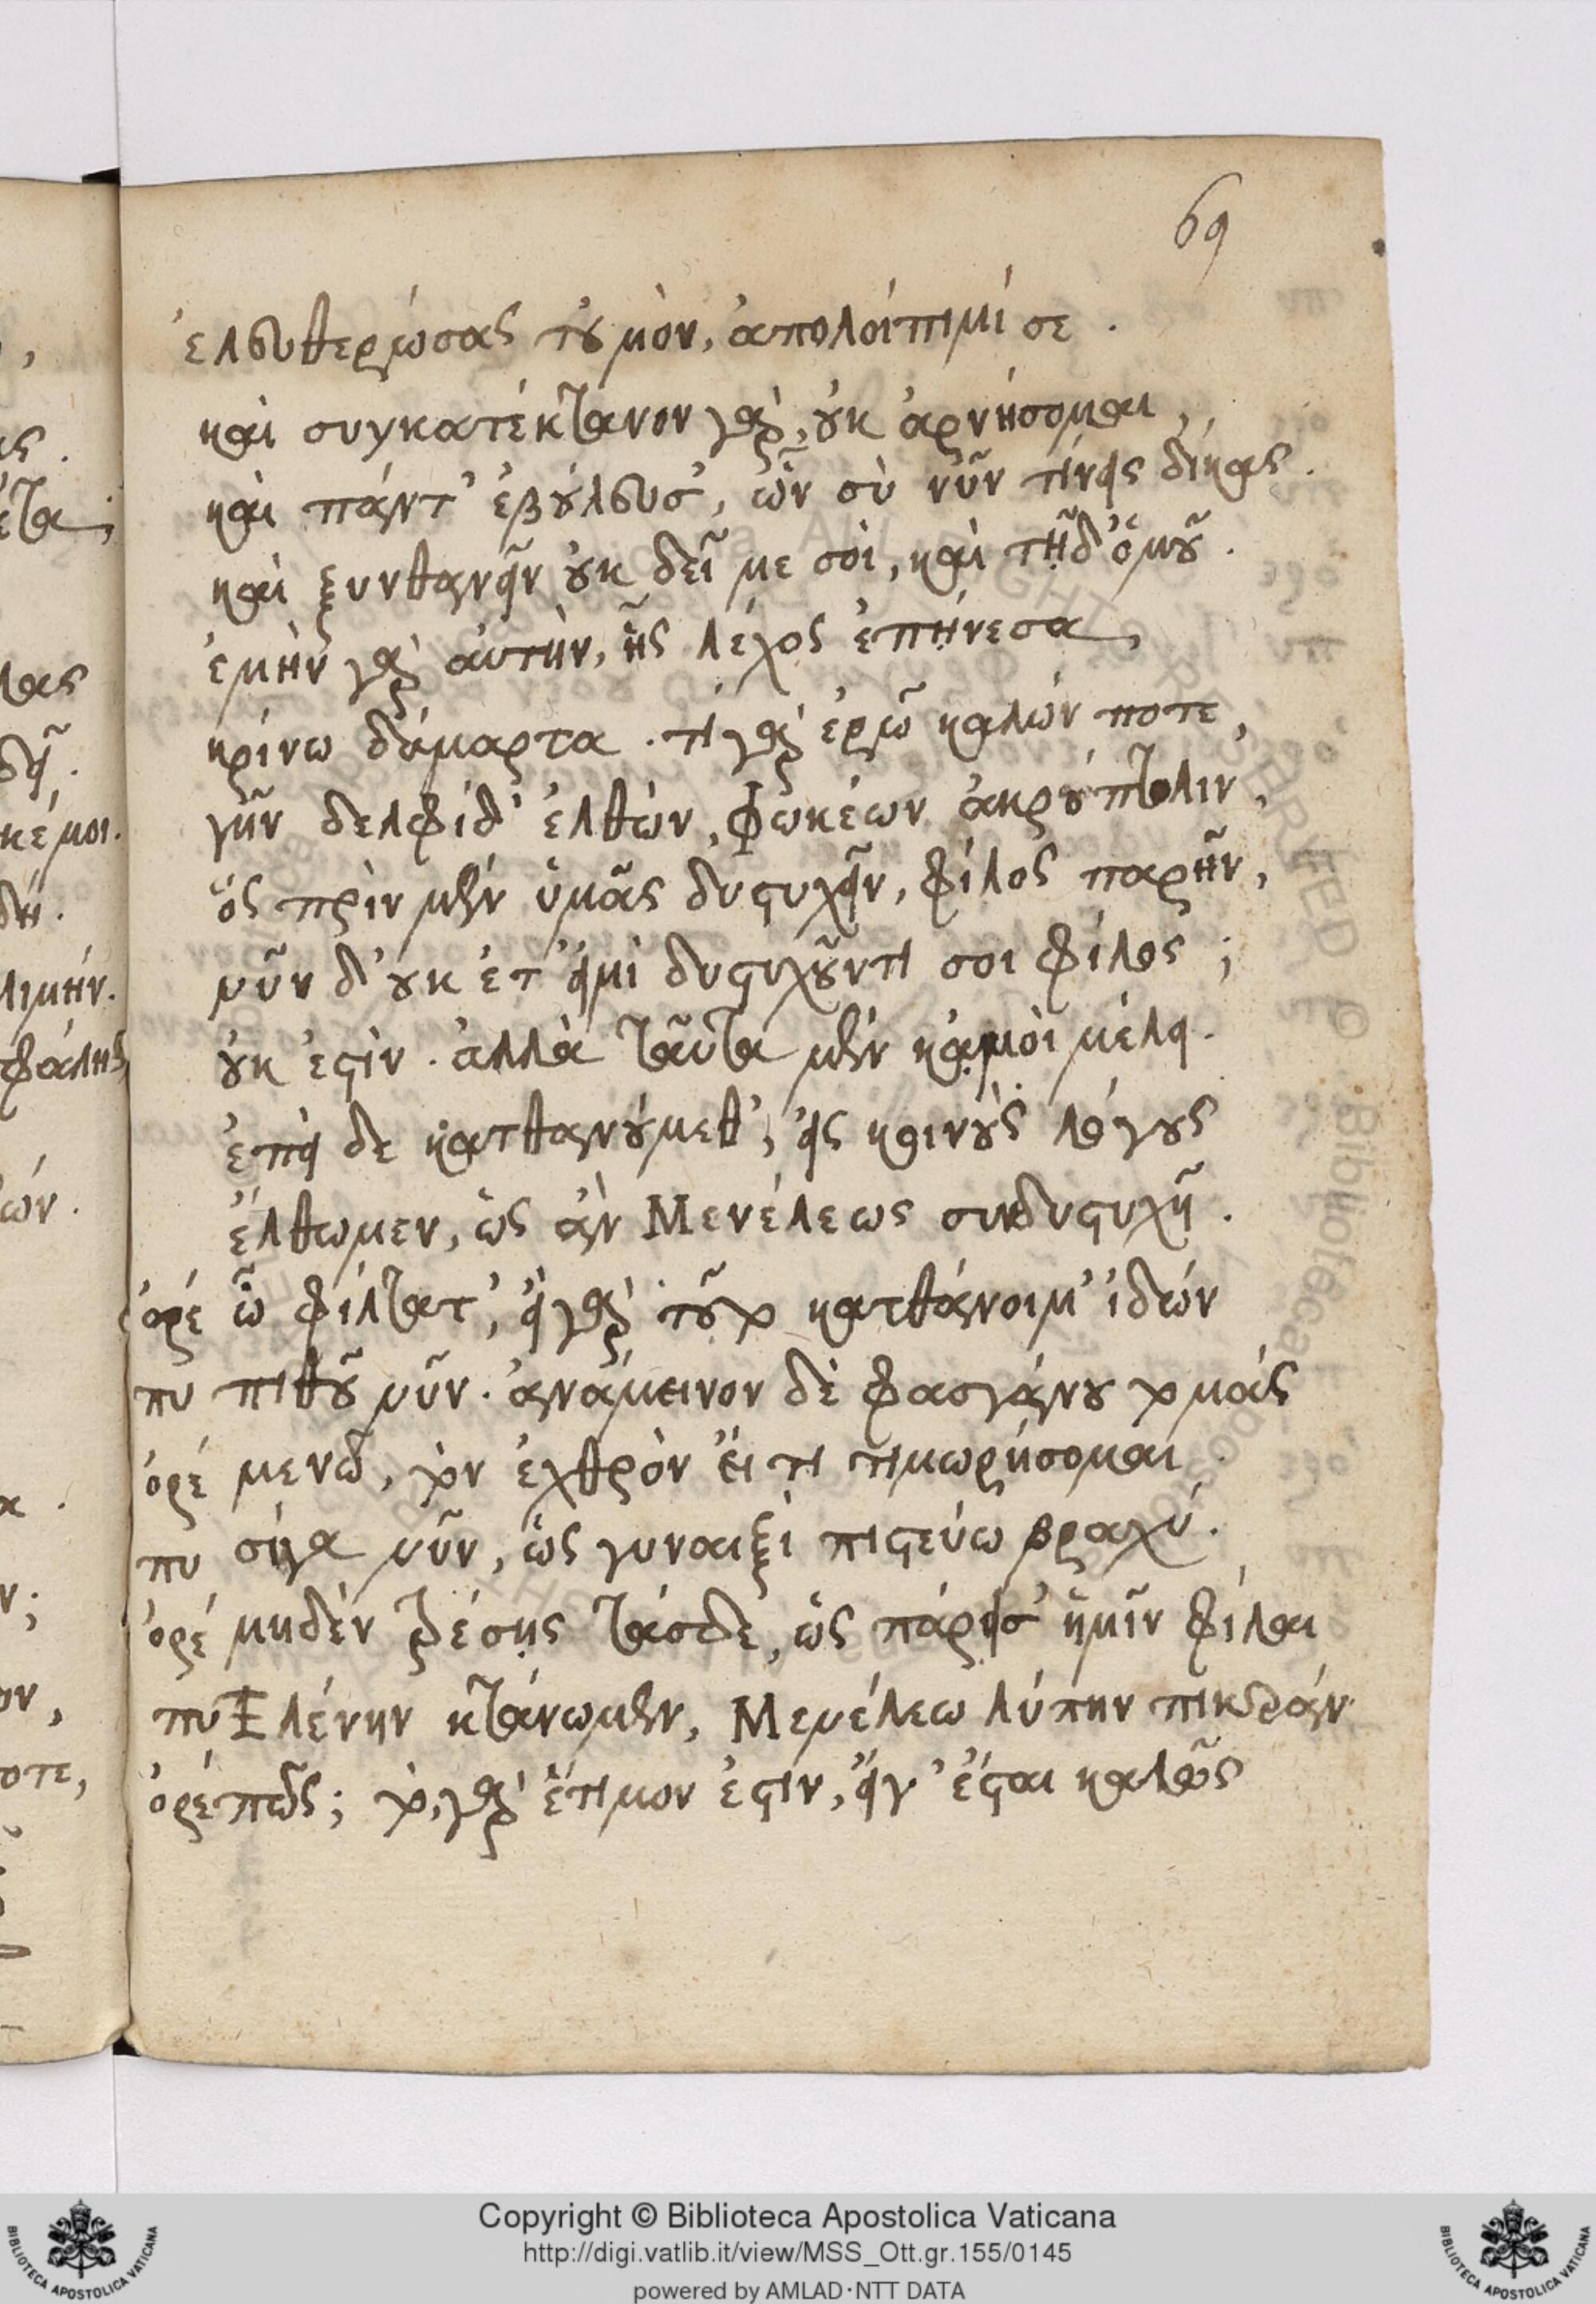 69
ἐλευθερώσας τοὐμὸν, ἀπολοίπιμί σε.
καὶ συγκατέκτανον γὰρ, οὐκ ἀρνήσομαι,
καὶ πάντ' ἐβούλευσ', ὧν σὺ νῦν τίνεις δίκας.
καὶ ξυνθανεῖν οὐκ δεῖ με σοὶ, καὶ τῇδ' ὁμοῦ.
ἐμὴν γὰρ αὐτὴν, ἧς λέχος ἐπῄνεσα,
κρίνω δάμαρτα. τί γὰρ ἐρῶ καλών ποτε,
γῆν δελφίδ' ἐλθὼν, Φωκέων ἀκρούπτολιν,
ὃς πρὶν μὲν ὑμᾶς δυστυχεῖν, φίλος παρῆν,
νῦν δ' οὐκ ἐτ' εἰμὶ δυστυχοῦντί σοι φίλος;
οὐκ ἐστίν. ἀλλὰ ταῦτα μὲν κᾀμοὶ μέλει.
ἐπεὶ δε κατθανούμεθ', εἰς κοινοὺς λόγους
ἔλθωμεν, ὡς ἂν Μενέλεως συνδυστυχῇ.
ὀρέ ὦ φίλτατ', εἰ γὰρ τοῦτο κατθάνοιμ' ἰδών
πυ πιθοῦ νῦν. ἀνάμεινον δὲ φασγάνου τομάς
ὀρέ μενῶ, τὸν ἐχθρὸν εἴ τι τιμωρήσομαι
πυ σίγα νῦν, ὡς γυναιξὶ πιστεύω βραχύ.
ὀρέ μηδὲν τρέσῃς τάσδε, ὡς πάρεισ' ἡμῖν φίλαι
πυ Ἑλένην κτάνωμεν, Μενέλεω λύπην πικράν
ὀρέ πῶς; τὸ, γὰρ ἕτιμον ἐστιν, εἴγ' ἔσται καλῶς
Copyright © Biblioteca Apostolica Vaticana
http://digi.vatlib.it/view/MSS_Ott.gr.155/0145
powered by AMLAD·NTT DATA
BIBLIOTECA APOSTOLICA VATICANA
BIBLIOTECA APOSTOLICA VATICANA